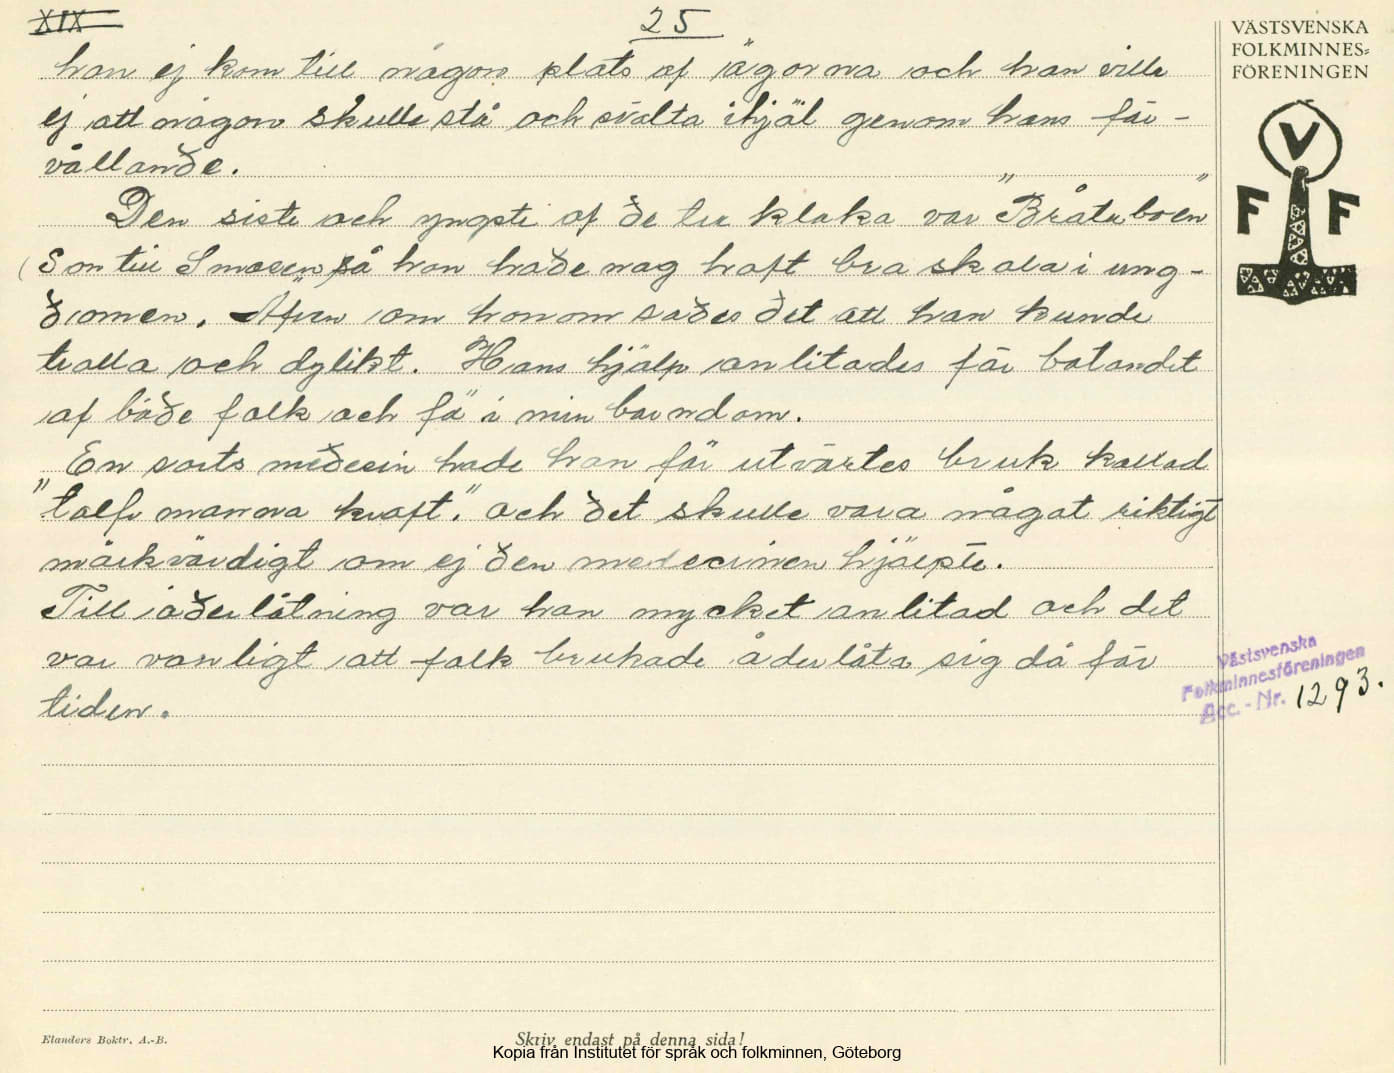 XIX
25
han ej kom till någon plats af ägorna och han ville
ej att någon skulle stå och svälta ihjäl genom hans för-
vållande.
Den siste och yngste af de tre kloka var "Bråteboen"
(Son till Smeden, så han hade nog haft bra skola i ung-
domen. Äfven om honom sades det att han kunde
trolla och dylikt. Hans hjälp anlitades för botandet
af både folk och fä i min barndom.
En sorts medesin hade han för utvärtes bruk kallad
"tolfv manna kraft". och det skulle vara något riktigt
märkvärdigt om ej den medecinen hjälpte.
Till åderlåtning var han mycket anlitad och det
var vanligt att folk brukade åderlåta sig då för
tiden.
VÄSTSVENSKA
FOLKMINNES-
FÖRENINGEN
V
F F
Västsvenska
Folkminnesföreningen
Acc. - Nr. 1293.
Elanders Boktr. A.-B.
Skriv endast på denna sida!
Kopia från Institutet för språk och folkminnen, Göteborg